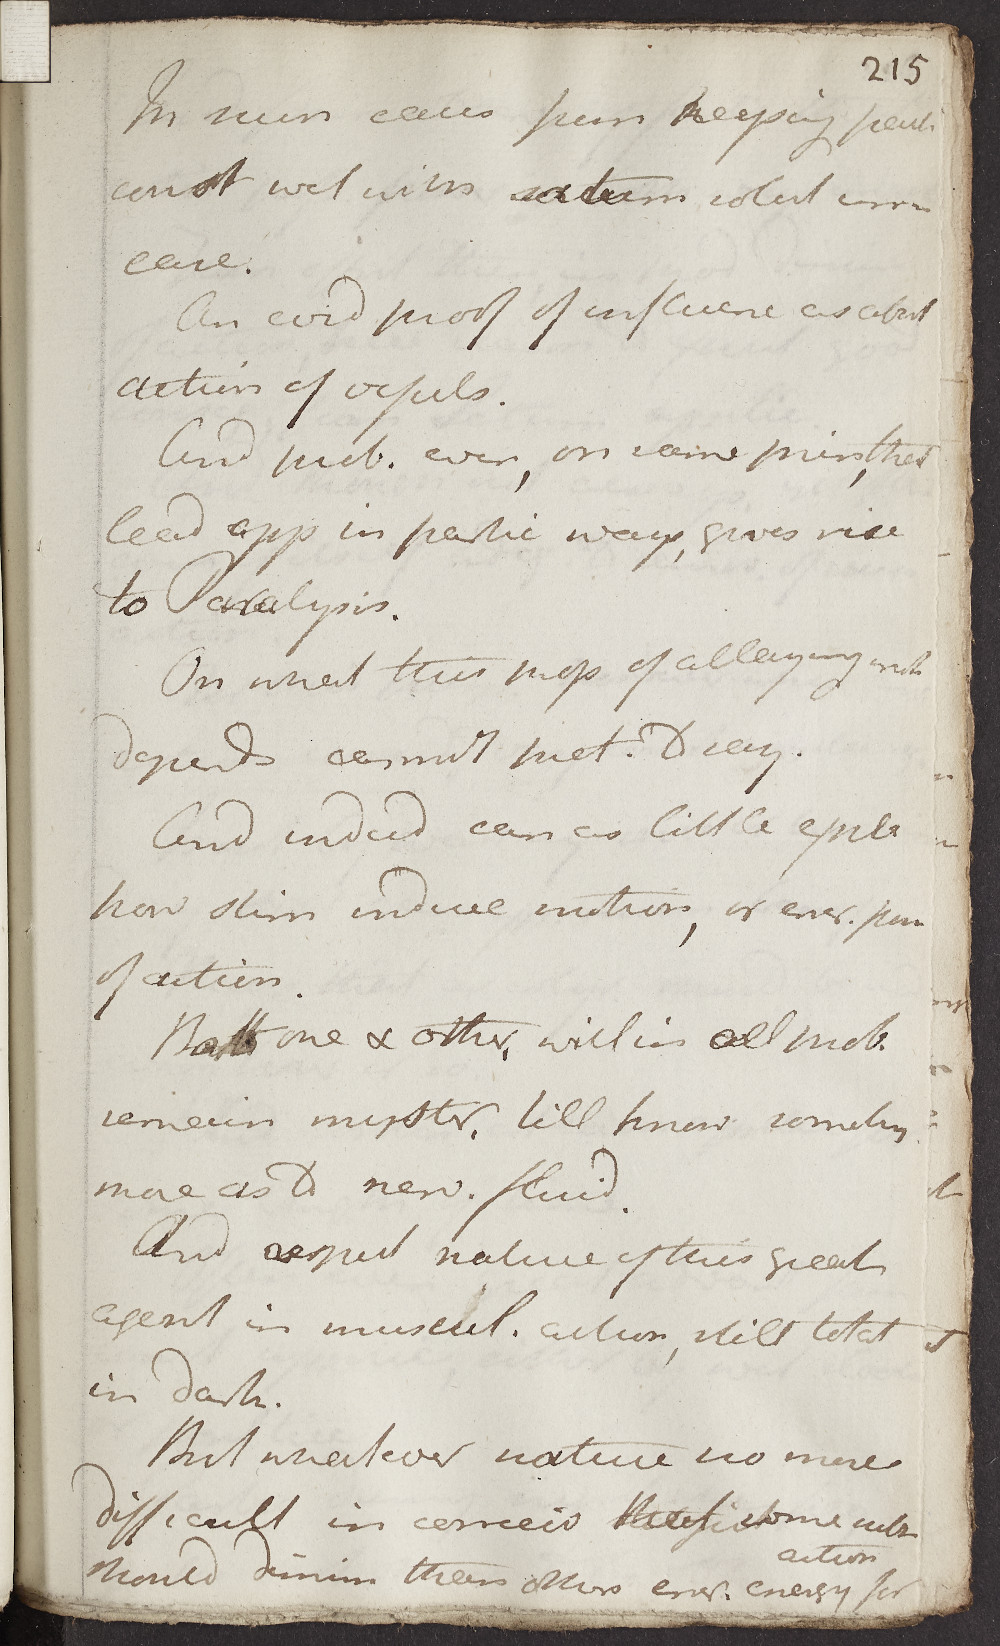 215
In num cases pun keeping parti
const wet with saturn solut
case.
An evid proof of influence as abat
action of vessels.
And prob. even, on same prin, that
lead app in partic way, gives rise
to Paralysis.
On what this prop of allaying
depends cannot pret. to say.
And indeed can as little expla
how stim induce motion, or ener. pow
of action.
Both one & other, will in all prob.
remain myster. till know somethg
more as to nerv. fluid.
And respect nature of this great
agent in muscul. action, still total
in dark.
But whatever nature no more
difficult in conceiv some subs
action
should dimin than others ener. energy for